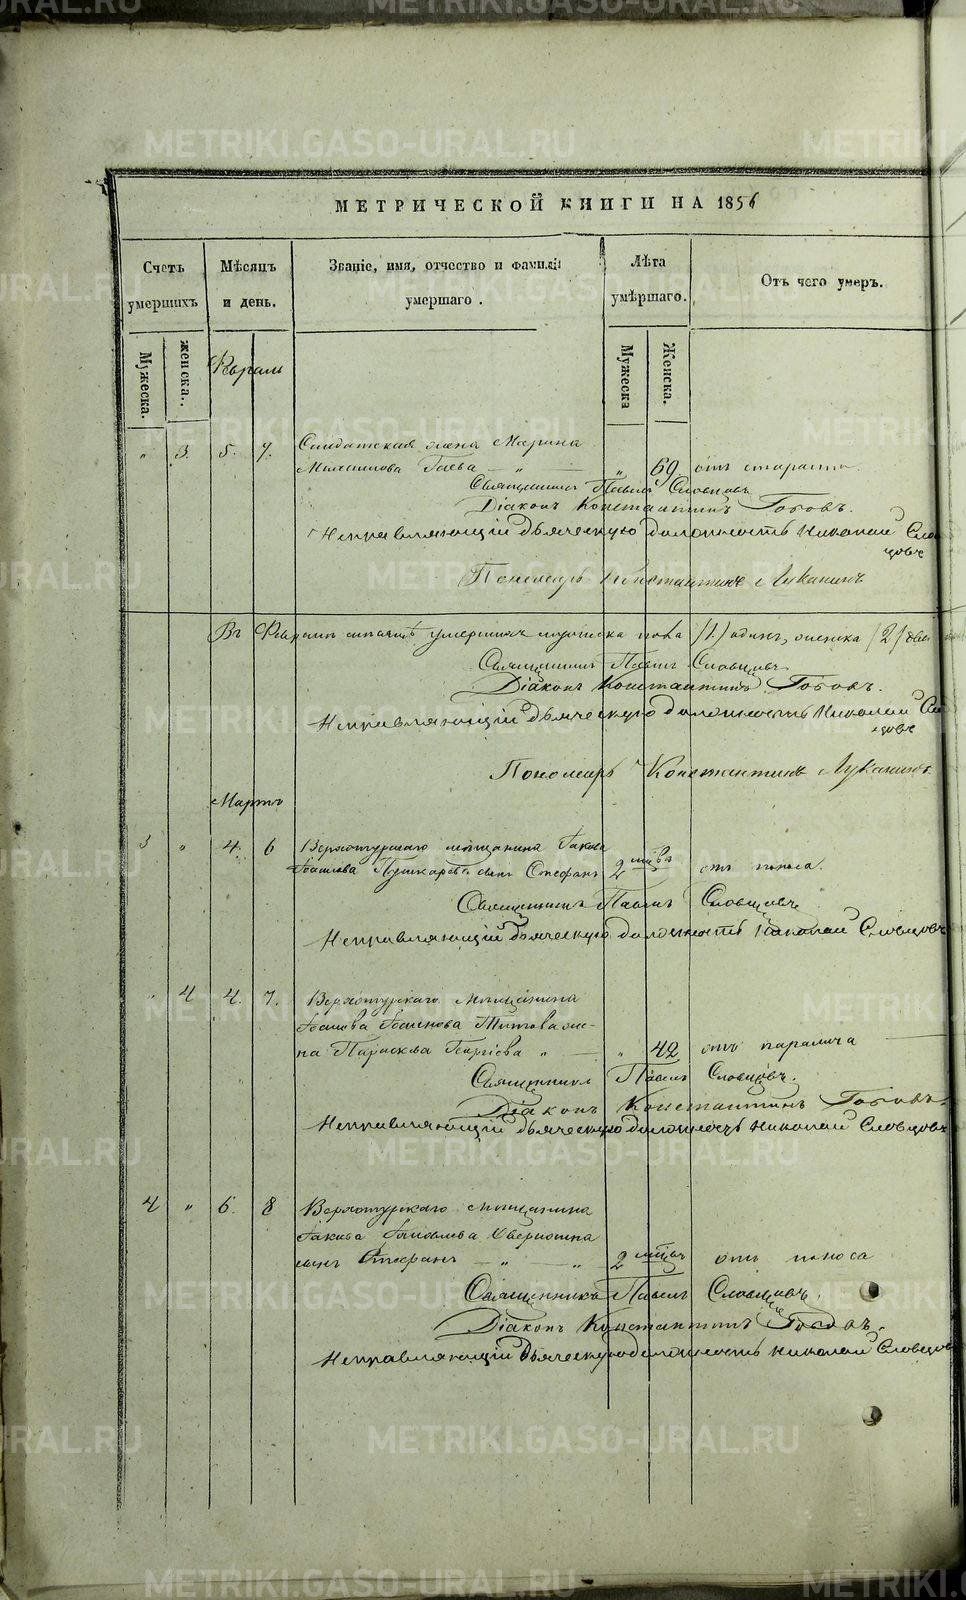 МЕТРИЧЕСКОЙ КНИГИ НА 1856
Счетъ умершихъ
Мѣсяцъ и день.
Званіе, имя, отчество и фамилія умершаго.
Лѣта умѣршаго.
Отъ чего умеръ.
Мужеска.
женска.
Мужеска
Женска.
Февраль
" 3. 5. 7. Солдатская жена Марина
Гаева — " — " 69 отъ старости
Священникъ Павелъ Словцовъ
Діаконъ Константинъ Гобовъ.
Исправляющій дьяческую должность Николай Слов
цовъ
Пономарь Константинъ Луканинъ
Въ Февралѣ мѣсяцѣ умершихъ мужеска пола /1/ одинъ, женска /2/ две
Священникъ Павелъ Словцовъ
Діаконъ Константинъ Гобовъ.
Исправляющій дьяческую должность Николай Сло
цовъ
Пономарь Константинъ Луканинъ.
Мартъ
3 " 4. 6 Верхотурскаго мѣщанина Іакова
Пушкарева сынъ Стефанъ 2 мѣся отъ поноса.
Священникъ Павелъ Словцовъ
Исправляющій дьяческую должность Николай Словцовъ
" 4 4. 7. Верхотурскаго Мѣщанина
Титова же-
на Параскева Георгіева " — " 42 отъ паралича
Священникъ Павелъ Словцовъ.
Діаконъ Константинъ Гобовъ.
Исправляющій дьяческую должность Николай Словцовъ
4 " 6. 8 Верхотурскаго мѣщанина
Іакова
сынъ Стефанъ — " — " 2 мѣсяц отъ поноса
Священникъ Павелъ Словцовъ.
Діаконъ Константинъ Гобовъ.
Исправляющій дьяческую должность Николай Словцовъ
METRIKI.GASO-URAL.RU